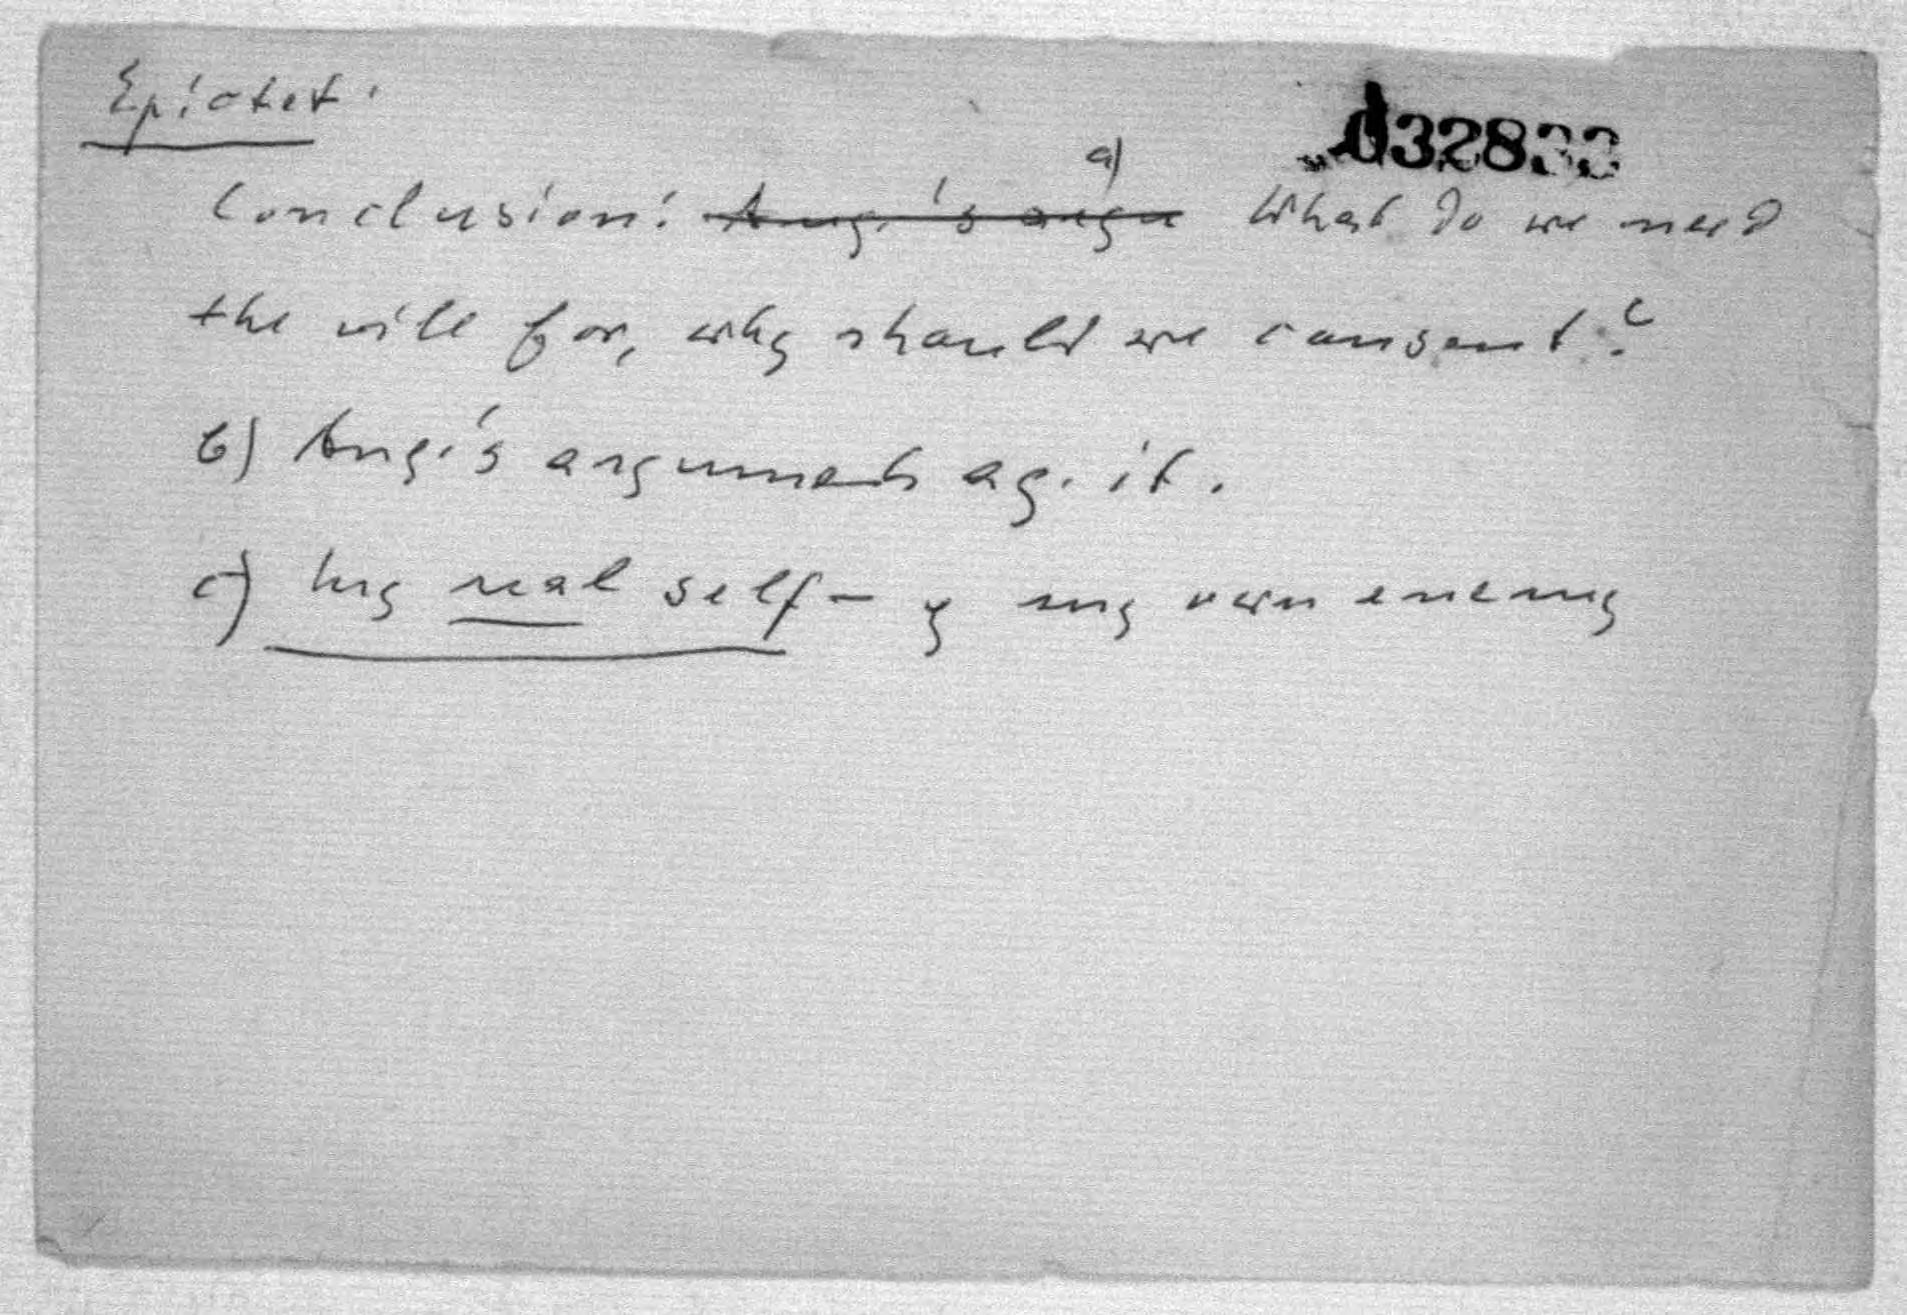 Epictet:
032833
Conclusion: ~~Aug.'s argu~~ a) What do we need
the will for, why should we consent?
b) Aug.'s arguments ag. it.
c) My real self – y my own enemy